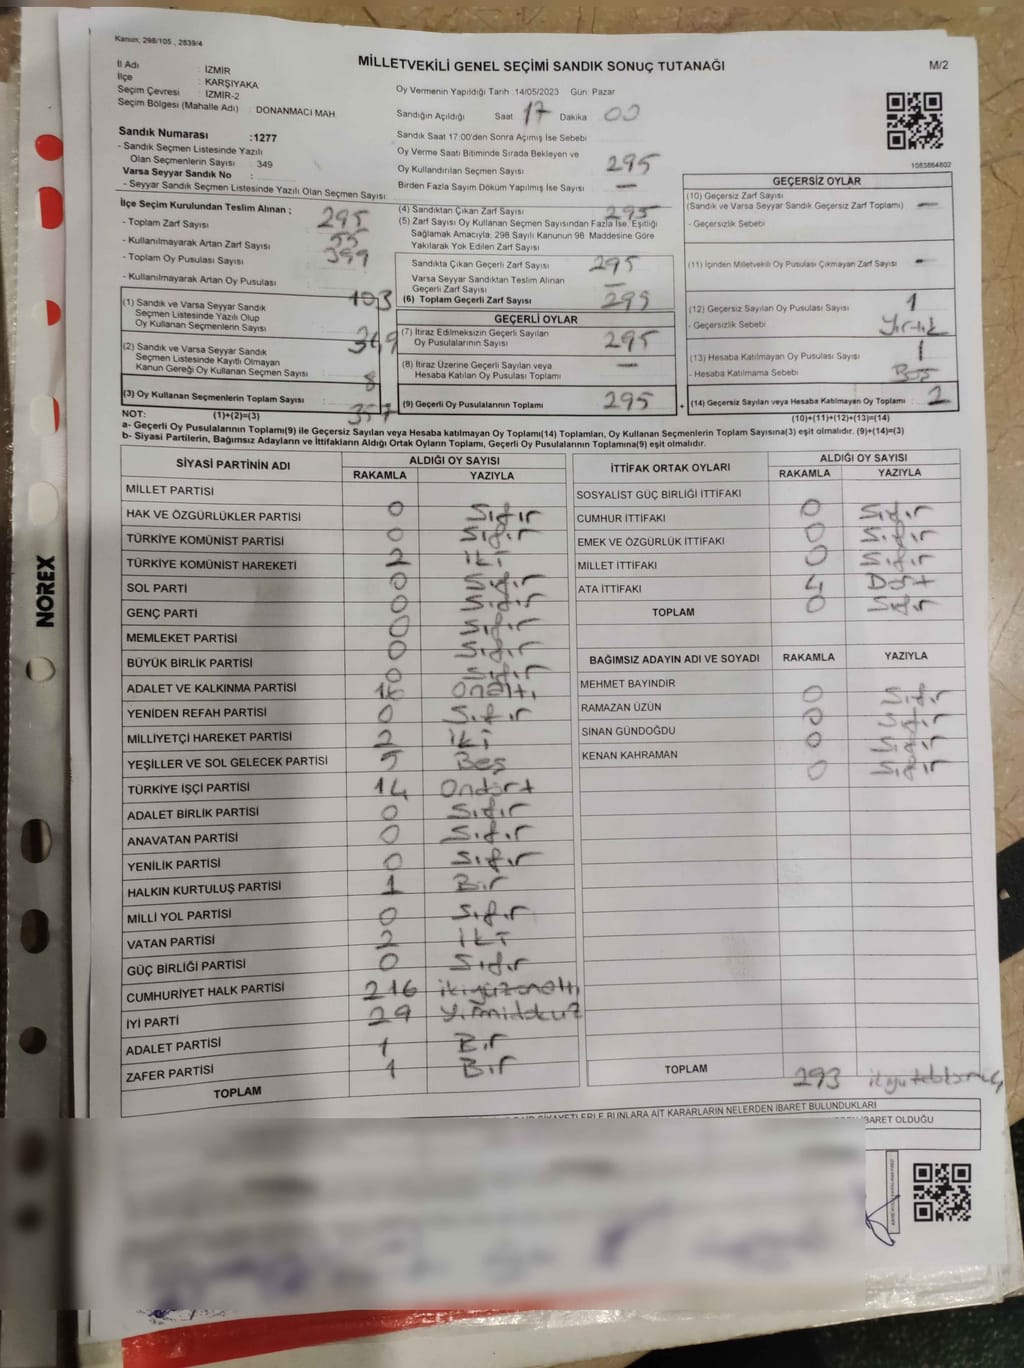 Kanun; 298/105 , 2839/4
MİLLETVEKİLİ GENEL SEÇİMİ SANDIK SONUÇ TUTANAĞI
M/2
İl Adı : İZMİR
İlçe : KARŞIYAKA
Seçim Çevresi : İZMİR-2
Seçim Bölgesi (Mahalle Adı) DONANMACI MAH
Sandık Numarası :1277
- Sandık Seçmen Listesinde Yazılı
Olan Seçmenlerin Sayısı : 349
Varsa Seyyar Sandık No :
- Seyyar Sandık Seçmen Listesinde Yazılı Olan Seçmen Sayısı:
Oy Vermenin Yapıldığı Tarih 14/05/2023 Gün Pazar
Sandığın Açıldığı Saat 17 Dakika 00
Sandık Saat 17:00'den Sonra Açımış İse Sebebi
Oy Verme Saati Bitiminde Sırada Bekleyen ve
Oy Kullandırılan Seçmen Sayısı 295
Birden Fazla Sayım Döküm Yapılmış İse Sayısı —
1083864802
İlçe Seçim Kurulundan Teslim Alınan ;
- Toplam Zarf Sayısı 295
- Kullanılmayarak Artan Zarf Sayısı 55
- Toplam Oy Pusulası Sayısı 399
- Kullanılmayarak Artan Oy Pusulası 103
(1) Sandık ve Varsa Seyyar Sandık
Seçmen Listesinde Yazılı Olup
Oy Kullanan Seçmenlerin Sayısı 349
(2) Sandık ve Varsa Seyyar Sandık
Seçmen Listesinde Kayıtlı Olmayan
Kanun Gereği Oy Kullanan Seçmen Sayısı 8
(3) Oy Kullanan Seçmenlerin Toplam Sayısı 357
(4) Sandıktan Çıkan Zarf Sayısı 295
(5) Zarf Sayısı Oy Kullanan Seçmen Sayısından Fazla İse, Eşitliği
Sağlamak Amacıyla, 298 Sayılı Kanunun 98. Maddesine Göre
Yakılarak Yok Edilen Zarf Sayısı
Sandıkta Çıkan Geçerli Zarf Sayısı 295
Varsa Seyyar Sandıktan Teslim Alınan
Geçerli Zarf Sayısı —
(6) Toplam Geçerli Zarf Sayısı 295
GEÇERLİ OYLAR
(7) İtiraz Edilmeksizin Geçerli Sayılan
Oy Pusulalarının Sayısı 295
(8) İtiraz Üzerine Geçerli Sayılan veya
Hesaba Katılan Oy Pusulası Toplamı —
(9) Geçerli Oy Pusulalarının Toplamı 295 +
GEÇERSİZ OYLAR
(10) Geçersiz Zarf Sayısı
(Sandık ve Varsa Seyyar Sandık Geçersiz Zarf Toplamı) —
- Geçersizlik Sebebi
(11) İçinden Milletvekili Oy Pusulası Çıkmayan Zarf Sayısı —
(12) Geçersiz Sayılan Oy Pusulası Sayısı 1
- Geçersizlik Sebebi Yırtık
(13) Hesaba Katılmayan Oy Pusulası Sayısı 1
- Hesaba Katılmama Sebebi Boş
(14) Geçersiz Sayılan veya Hesaba Katılmayan Oy Toplamı 2
NOT: (1)+(2)=(3) (10)+(11)+(12)+(13)=(14)
a- Geçerli Oy Pusulalarının Toplamı(9) ile Geçersiz Sayılan veya Hesaba katılmayan Oy Toplamı(14) Toplamları, Oy Kullanan Seçmenlerin Toplam Sayısına(3) eşit olmalıdır. (9)+(14)=(3)
b- Siyasi Partilerin, Bağımsız Adayların ve İttifakların Aldığı Ortak Oyların Toplamı, Geçerli Oy Pusulalarının Toplamına(9) eşit olmalıdır.
SİYASİ PARTİNİN ADI ALDIĞI OY SAYISI
RAKAMLA YAZIYLA
MİLLET PARTİSİ 0 Sıfır
HAK VE ÖZGÜRLÜKLER PARTİSİ 0 Sıfır
TÜRKİYE KOMÜNİST PARTİSİ 2 İki
TÜRKİYE KOMÜNİST HAREKETİ 0 Sıfır
SOL PARTİ 0 Sıfır
GENÇ PARTİ 0 Sıfır
MEMLEKET PARTİSİ 0 Sıfır
BÜYÜK BİRLİK PARTİSİ 0 Sıfır
ADALET VE KALKINMA PARTİSİ 16 Onaltı
YENİDEN REFAH PARTİSİ 0 Sıfır
MİLLİYETÇİ HAREKET PARTİSİ 2 İki
YEŞİLLER VE SOL GELECEK PARTİSİ 5 Beş
TÜRKİYE İŞÇİ PARTİSİ 14 Ondört
ADALET BİRLİK PARTİSİ 0 Sıfır
ANAVATAN PARTİSİ 0 Sıfır
YENİLİK PARTİSİ 0 Sıfır
HALKIN KURTULUŞ PARTİSİ 1 Bir
MİLLİ YOL PARTİSİ 0 Sıfır
VATAN PARTİSİ 2 İki
GÜÇ BİRLİĞİ PARTİSİ 0 Sıfır
CUMHURİYET HALK PARTİSİ 216 ikiyüzonaltı
İYİ PARTİ 29 Yirmidokuz
ADALET PARTİSİ 1 Bir
ZAFER PARTİSİ 1 Bir
TOPLAM
İTTİFAK ORTAK OYLARI ALDIĞI OY SAYISI
RAKAMLA YAZIYLA
SOSYALİST GÜÇ BİRLİĞİ İTTİFAKI 0 Sıfır
CUMHUR İTTİFAKI 0 Sıfır
EMEK VE ÖZGÜRLÜK İTTİFAKI 0 Sıfır
MİLLET İTTİFAKI 4 Dört
ATA İTTİFAKI 0 Sıfır
TOPLAM
BAĞIMSIZ ADAYIN ADI VE SOYADI RAKAMLA YAZIYLA
MEHMET BAYINDIR 0 Sıfır
RAMAZAN ÜZÜN 0 Sıfır
SİNAN GÜNDOĞDU 0 Sıfır
KENAN KAHRAMAN 0 Sıfır
TOPLAM 293
BUNLARA AİT KARARLARIN NELERDEN İBARET BULUNDUKLARI
İBARET OLDUĞU
NOREX